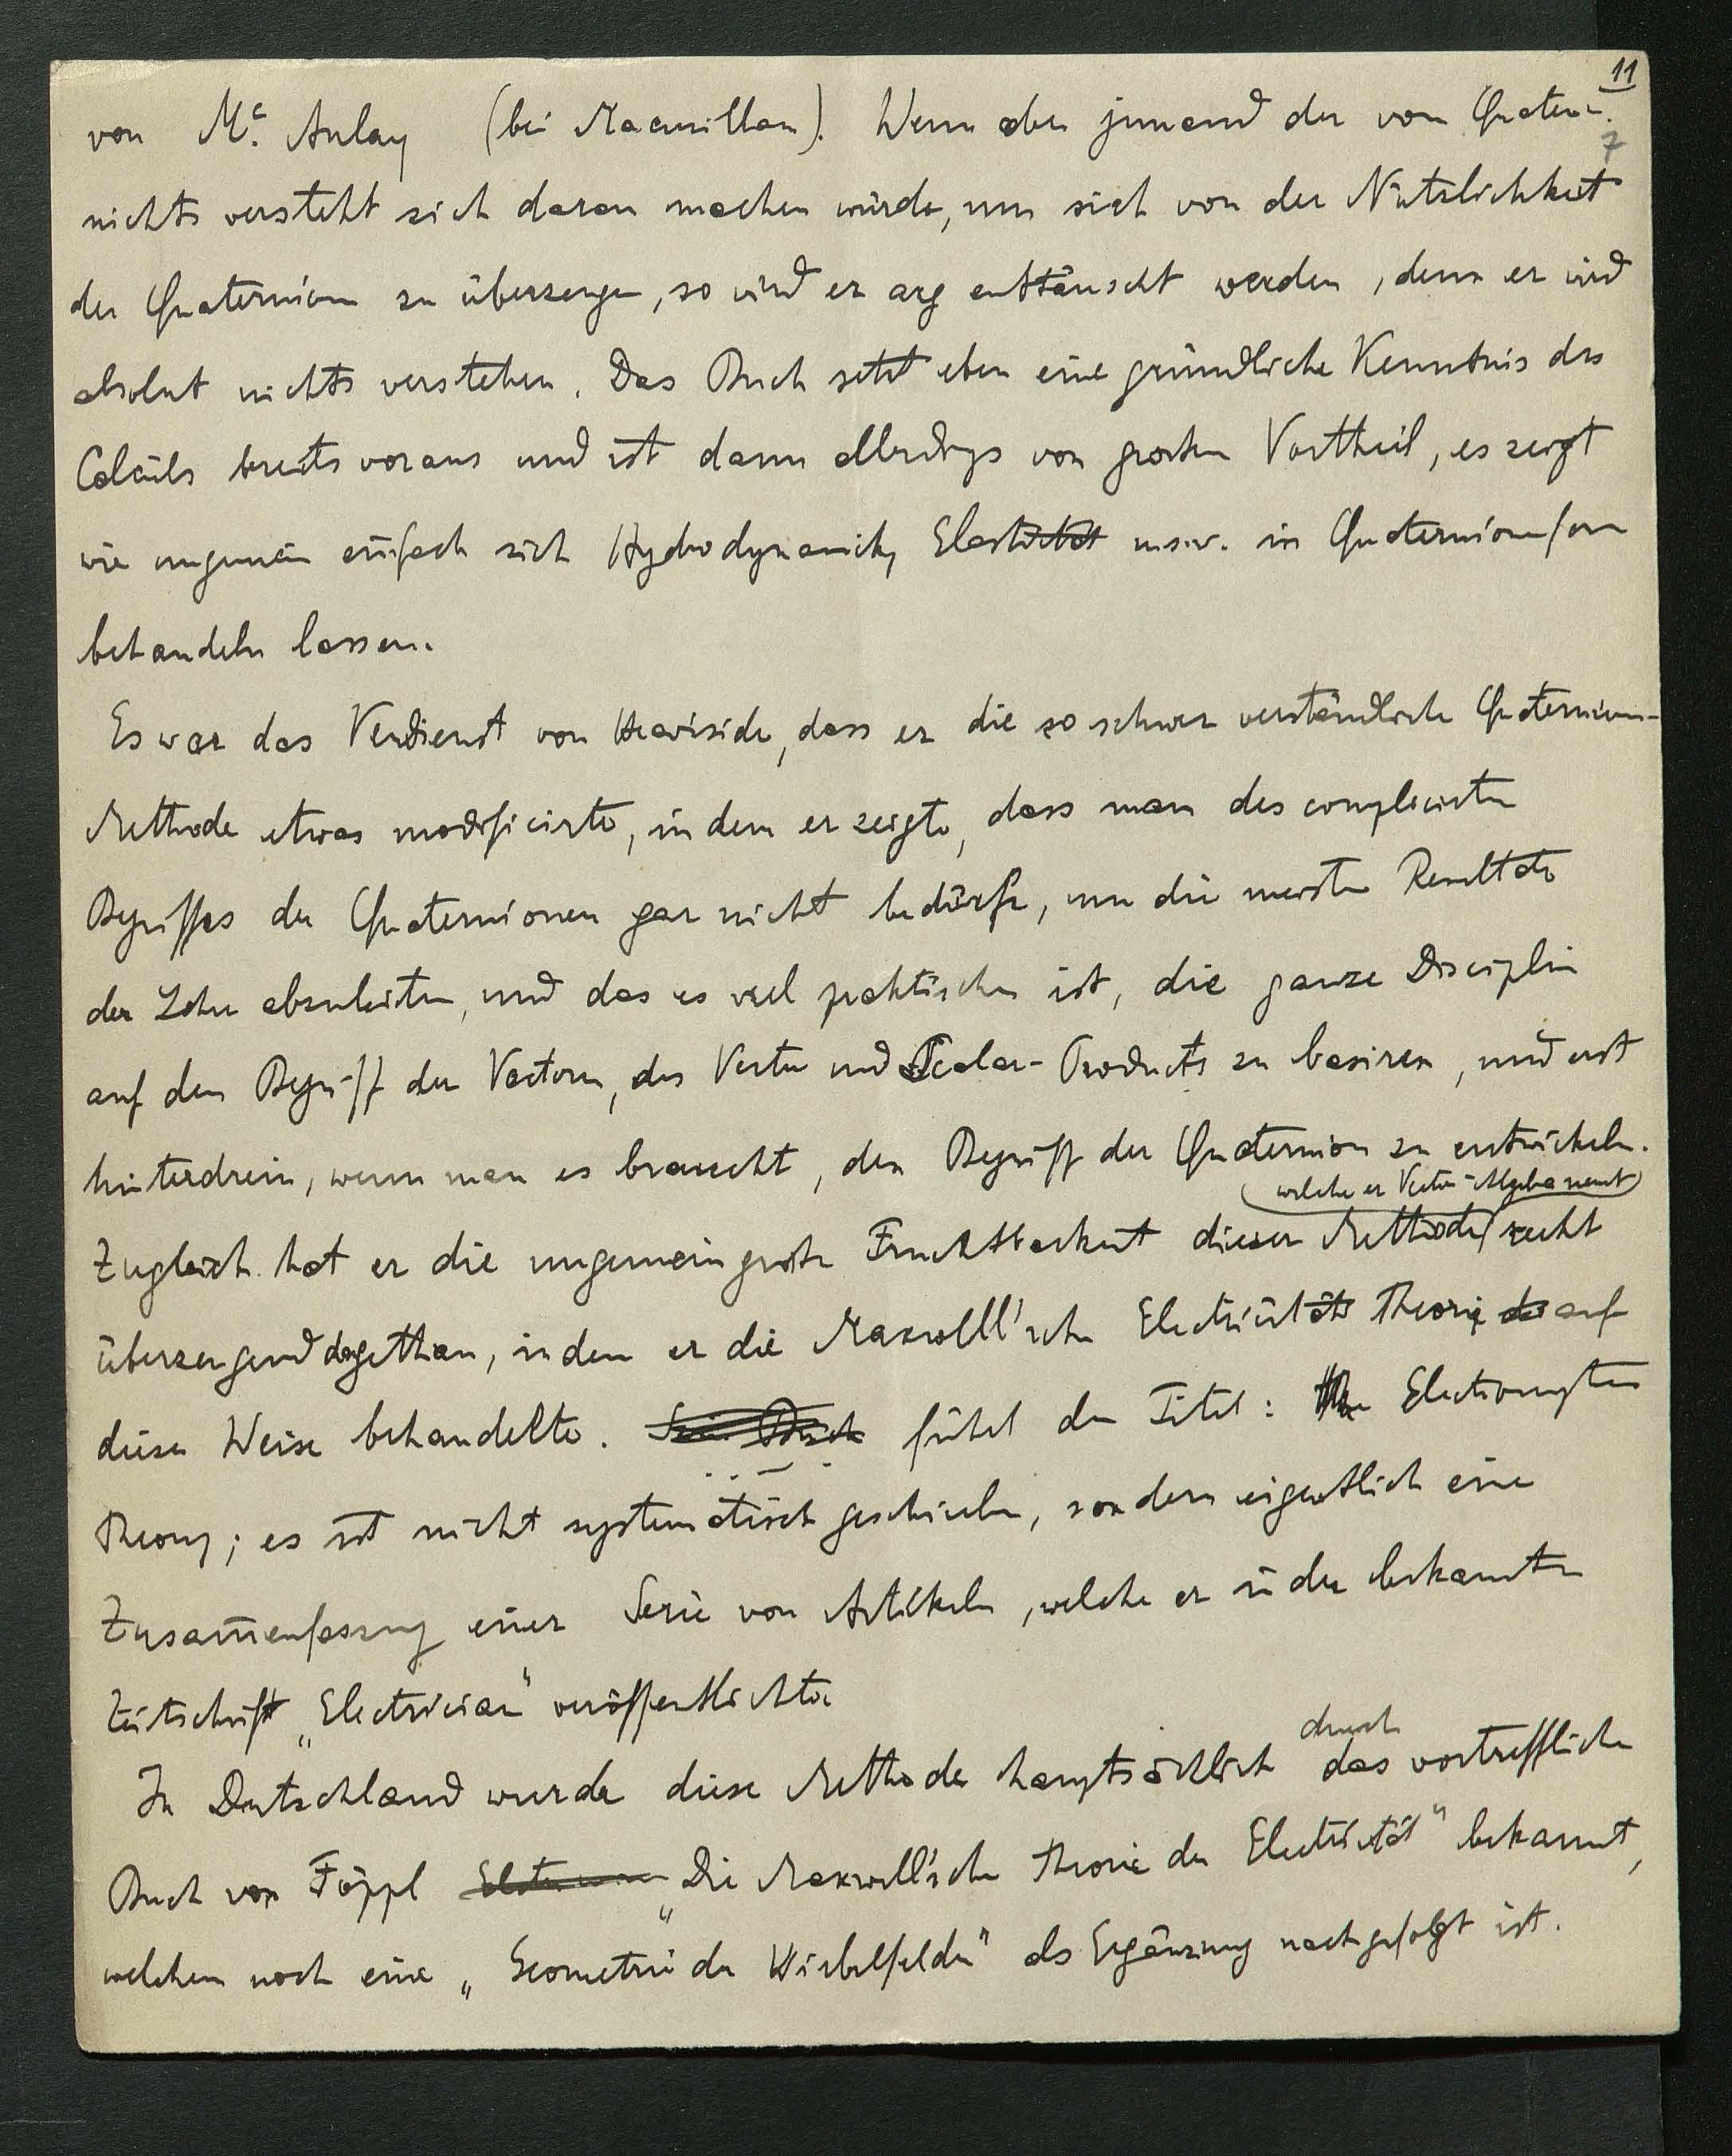 11
von Mc. Aulay (bei Macmillan). Wenn aber jemand der von Quatern.
7
nichts versteht sich daran machen würde, um sich von der Nützlichkeit
der Quaternion zu überzeugen, so wird er arg enttäuscht werden, denn er wird
absolut nichts verstehen. Das Buch setzt eben eine gründliche Kenntnis des
Calculs bereits voraus und ist dann allerdings von grossem Vortheil, es zeigt
wie ungemein einfach sich Hydrodynamik, Elasticität u.s.w. in Quaternionform
behandeln lassen.
Es war das Verdienst von Heaviside, dass er die so schwer verständliche Quaternion-
Methode etwas modificirte, in dem er zeigte, dass man des complicirten
Begriffes der Quaternionen gar nicht bedürfe, um die meisten Resultate
der Lehre abzuleiten, und das es viel praktischer ist, die ganze Disciplin
auf dem Begriff der Vectoren, des Vector und Scalar-Products zu basiren, und erst
hinterdrein, wenn man es braucht, den Begriff der Quaternion zu entwickeln.
welche er Vector-Algebra nennt
Zugleich hat er die ungemein grosse Fruchtbarkeit dieser Methode recht
überzeugend dargethan, in dem er die Maxwelll'sche Electricitäts Theorie auf
diese Weise behandelte. Sein Buch führt den Titel: Electromagnetic
Theory; es ist nicht systematisch geschrieben, sondern eigentlich eine
Zusam̅enfassung einer Serie von Artikeln, welche er in der bekannten
Zeitschrift „Electrician" veröffentlichte
durch
In Deutschland wurde diese Methode hauptsächlich das vortreffliche
Buch von Föppl „Die Maxwell'sche Theorie der Electricität" bekannt,
welchem noch eine „Geometrie der Wirbelfelder" als Ergänzung nachgefolgt ist.